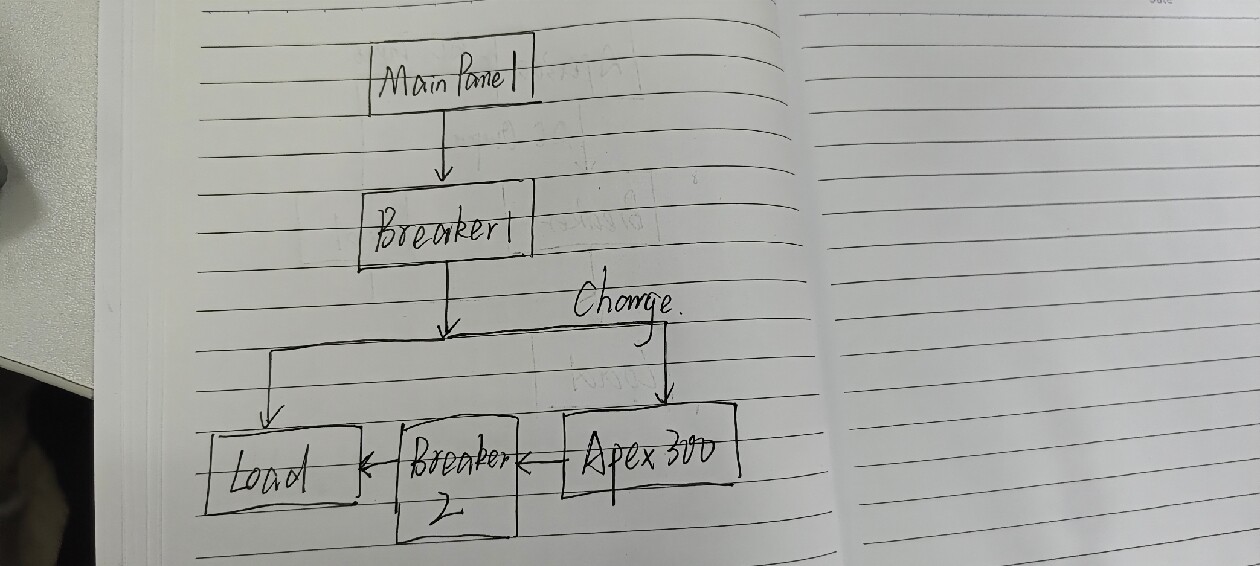 Main Panel
Breaker 1
Charge.
Load
Breaker
2
Apex 300